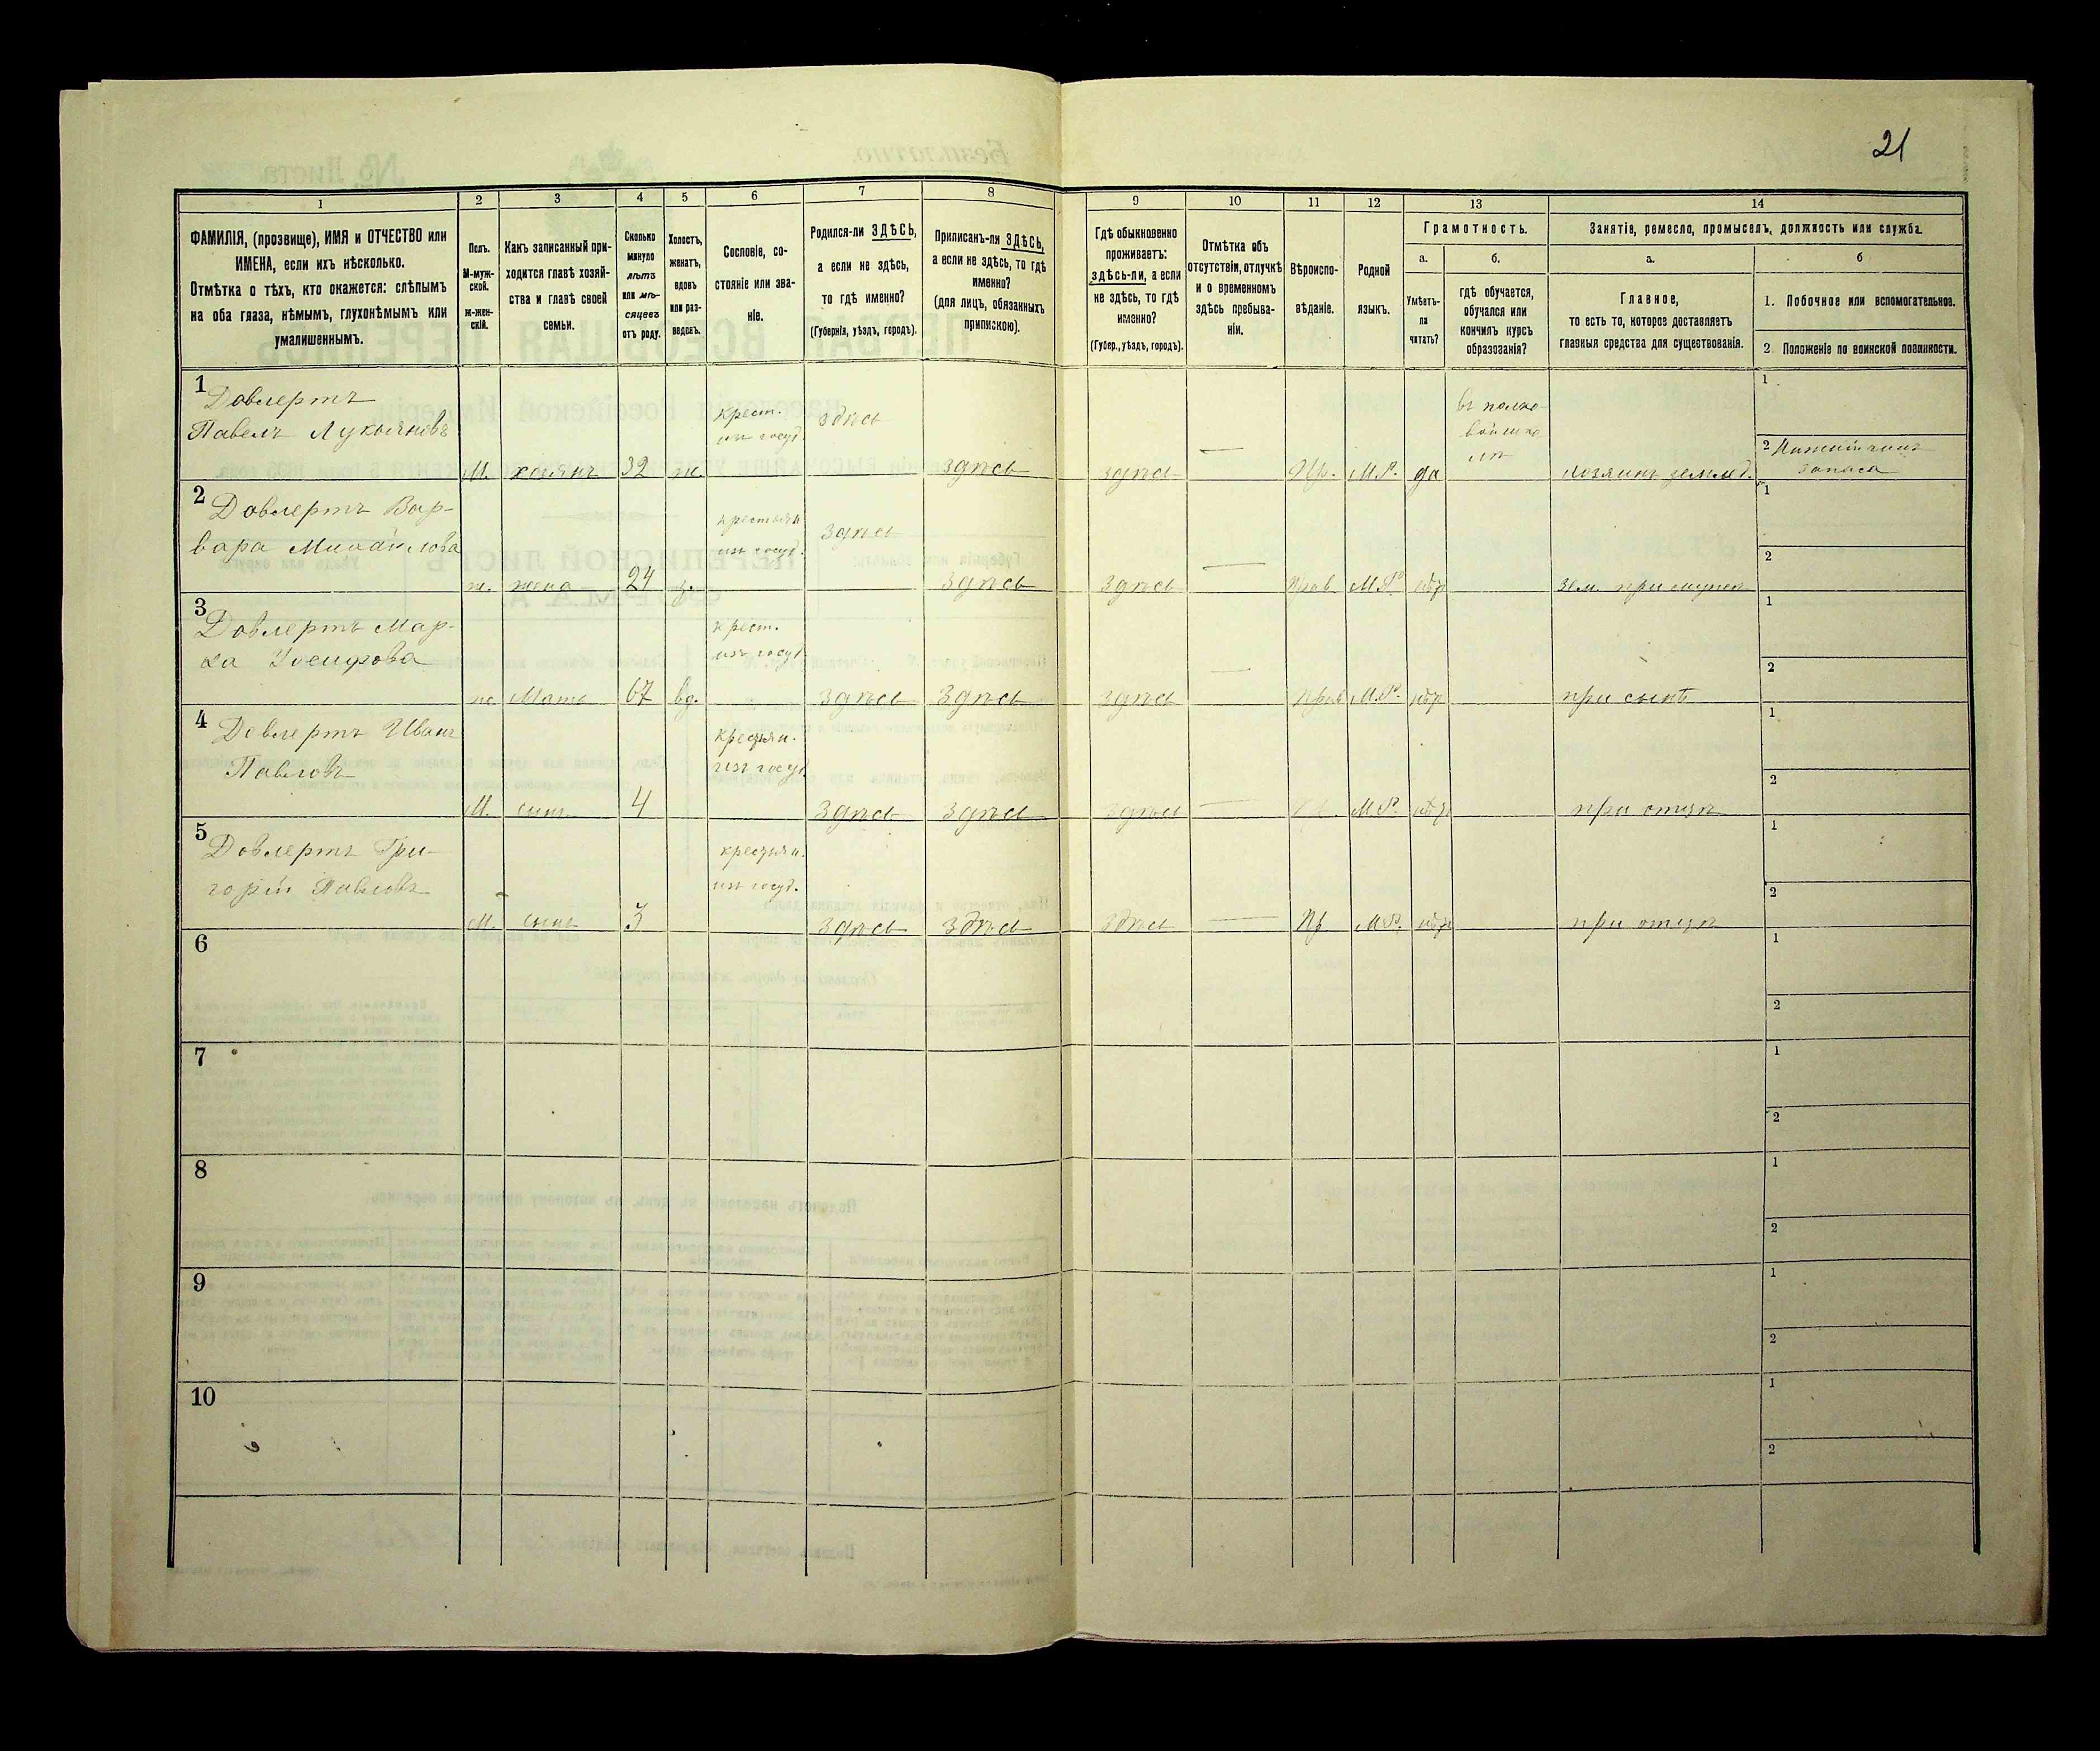 21
1 2 3 4 5 6 7 8 9 10 11 12 13 14
ФАМИЛІЯ, (прозвище), ИМЯ и ОТЧЕСТВО или
ИМЕНА, если ихъ нѣсколько.
Отмѣтка о тѣхъ, кто окажется: слѣпымъ
на оба глаза, нѣмымъ, глухонѣмымъ или
умалишеннымъ.
Полъ.
М-муж-
ской.
Ж-жен-
скій.
Какъ записанный при-
ходится главѣ хозяй-
ства и главѣ своей
семьи.
Сколько
минуло
лѣтъ
или мѣ-
сяцевъ
отъ роду.
Холостъ,
женатъ,
вдовъ
или раз-
веденъ.
Сословіе, со-
стояніе или зва-
ніе.
Родился-ли ЗДѢСЬ,
а если не здѣсь,
то гдѣ именно?
(Губернія, уѣздъ, городъ).
Приписанъ-ли ЗДѢСЬ,
а если не здѣсь, то гдѣ
именно?
(для лицъ, обязанныхъ
припискою).
Гдѣ обыкновенно
проживаетъ:
здѣсь-ли, а если
не здѣсь, то гдѣ
именно?
(Губер., уѣздъ, городъ).
Отмѣтка объ
отсутствіи, отлучкѣ
и о временномъ
здѣсь пребыва-
ніи.
Вѣроиспо-
вѣданіе.
Родной
языкъ.
Грамотность.
а.
Умѣетъ-
ли
читать?
б.
гдѣ обучается,
обучался или
кончилъ курсъ
образованія?
Занятіе, ремесло, промыселъ, должность или служба.
а.
Главное,
то есть то, которое доставляетъ
главныя средства для существованія.
б
1. Побочное или вспомогательное.
2. Положеніе по воинской повинности.
1
Довлертъ
Павелъ Лукьяновъ
М. хозяинъ 32 ж.
крест.
изъ госуд.
здѣсь
здѣсь
здѣсь — Пр. М.Р. да
въ полко-
вой шко-
лѣ
хозяинъ землед.
1
2 Нижній чинъ
запаса
2
Довлертъ Вар-
вара Михайлова
ж. жена 24 з.
крестьян
изъ госуд.
здѣсь
здѣсь
здѣсь — Прав. М.Р. нѣтъ
зем. при мужѣ
1
2
3
Довлертъ Мар-
ха Іосифова
ж. Мать 67 вд.
крест.
изъ госуд.
здѣсь здѣсь
здѣсь — Прав М.Р. нѣтъ
при сынѣ
1
2
4
Довлертъ Иванъ
Павловъ
М. сынъ 4
крестьян.
изъ госуд.
здѣсь здѣсь
здѣсь — Пр. М.Р. нѣтъ
при отцѣ
1
2
5
Довлертъ Гри-
горій Павловъ
М. сынъ 3
крестьян.
изъ госуд.
здѣсь здѣсь
здѣсь — Пр М.Р. нѣтъ
при отцѣ
1
2
6
1
2
7
1
2
8
1
2
9
1
2
10
1
2